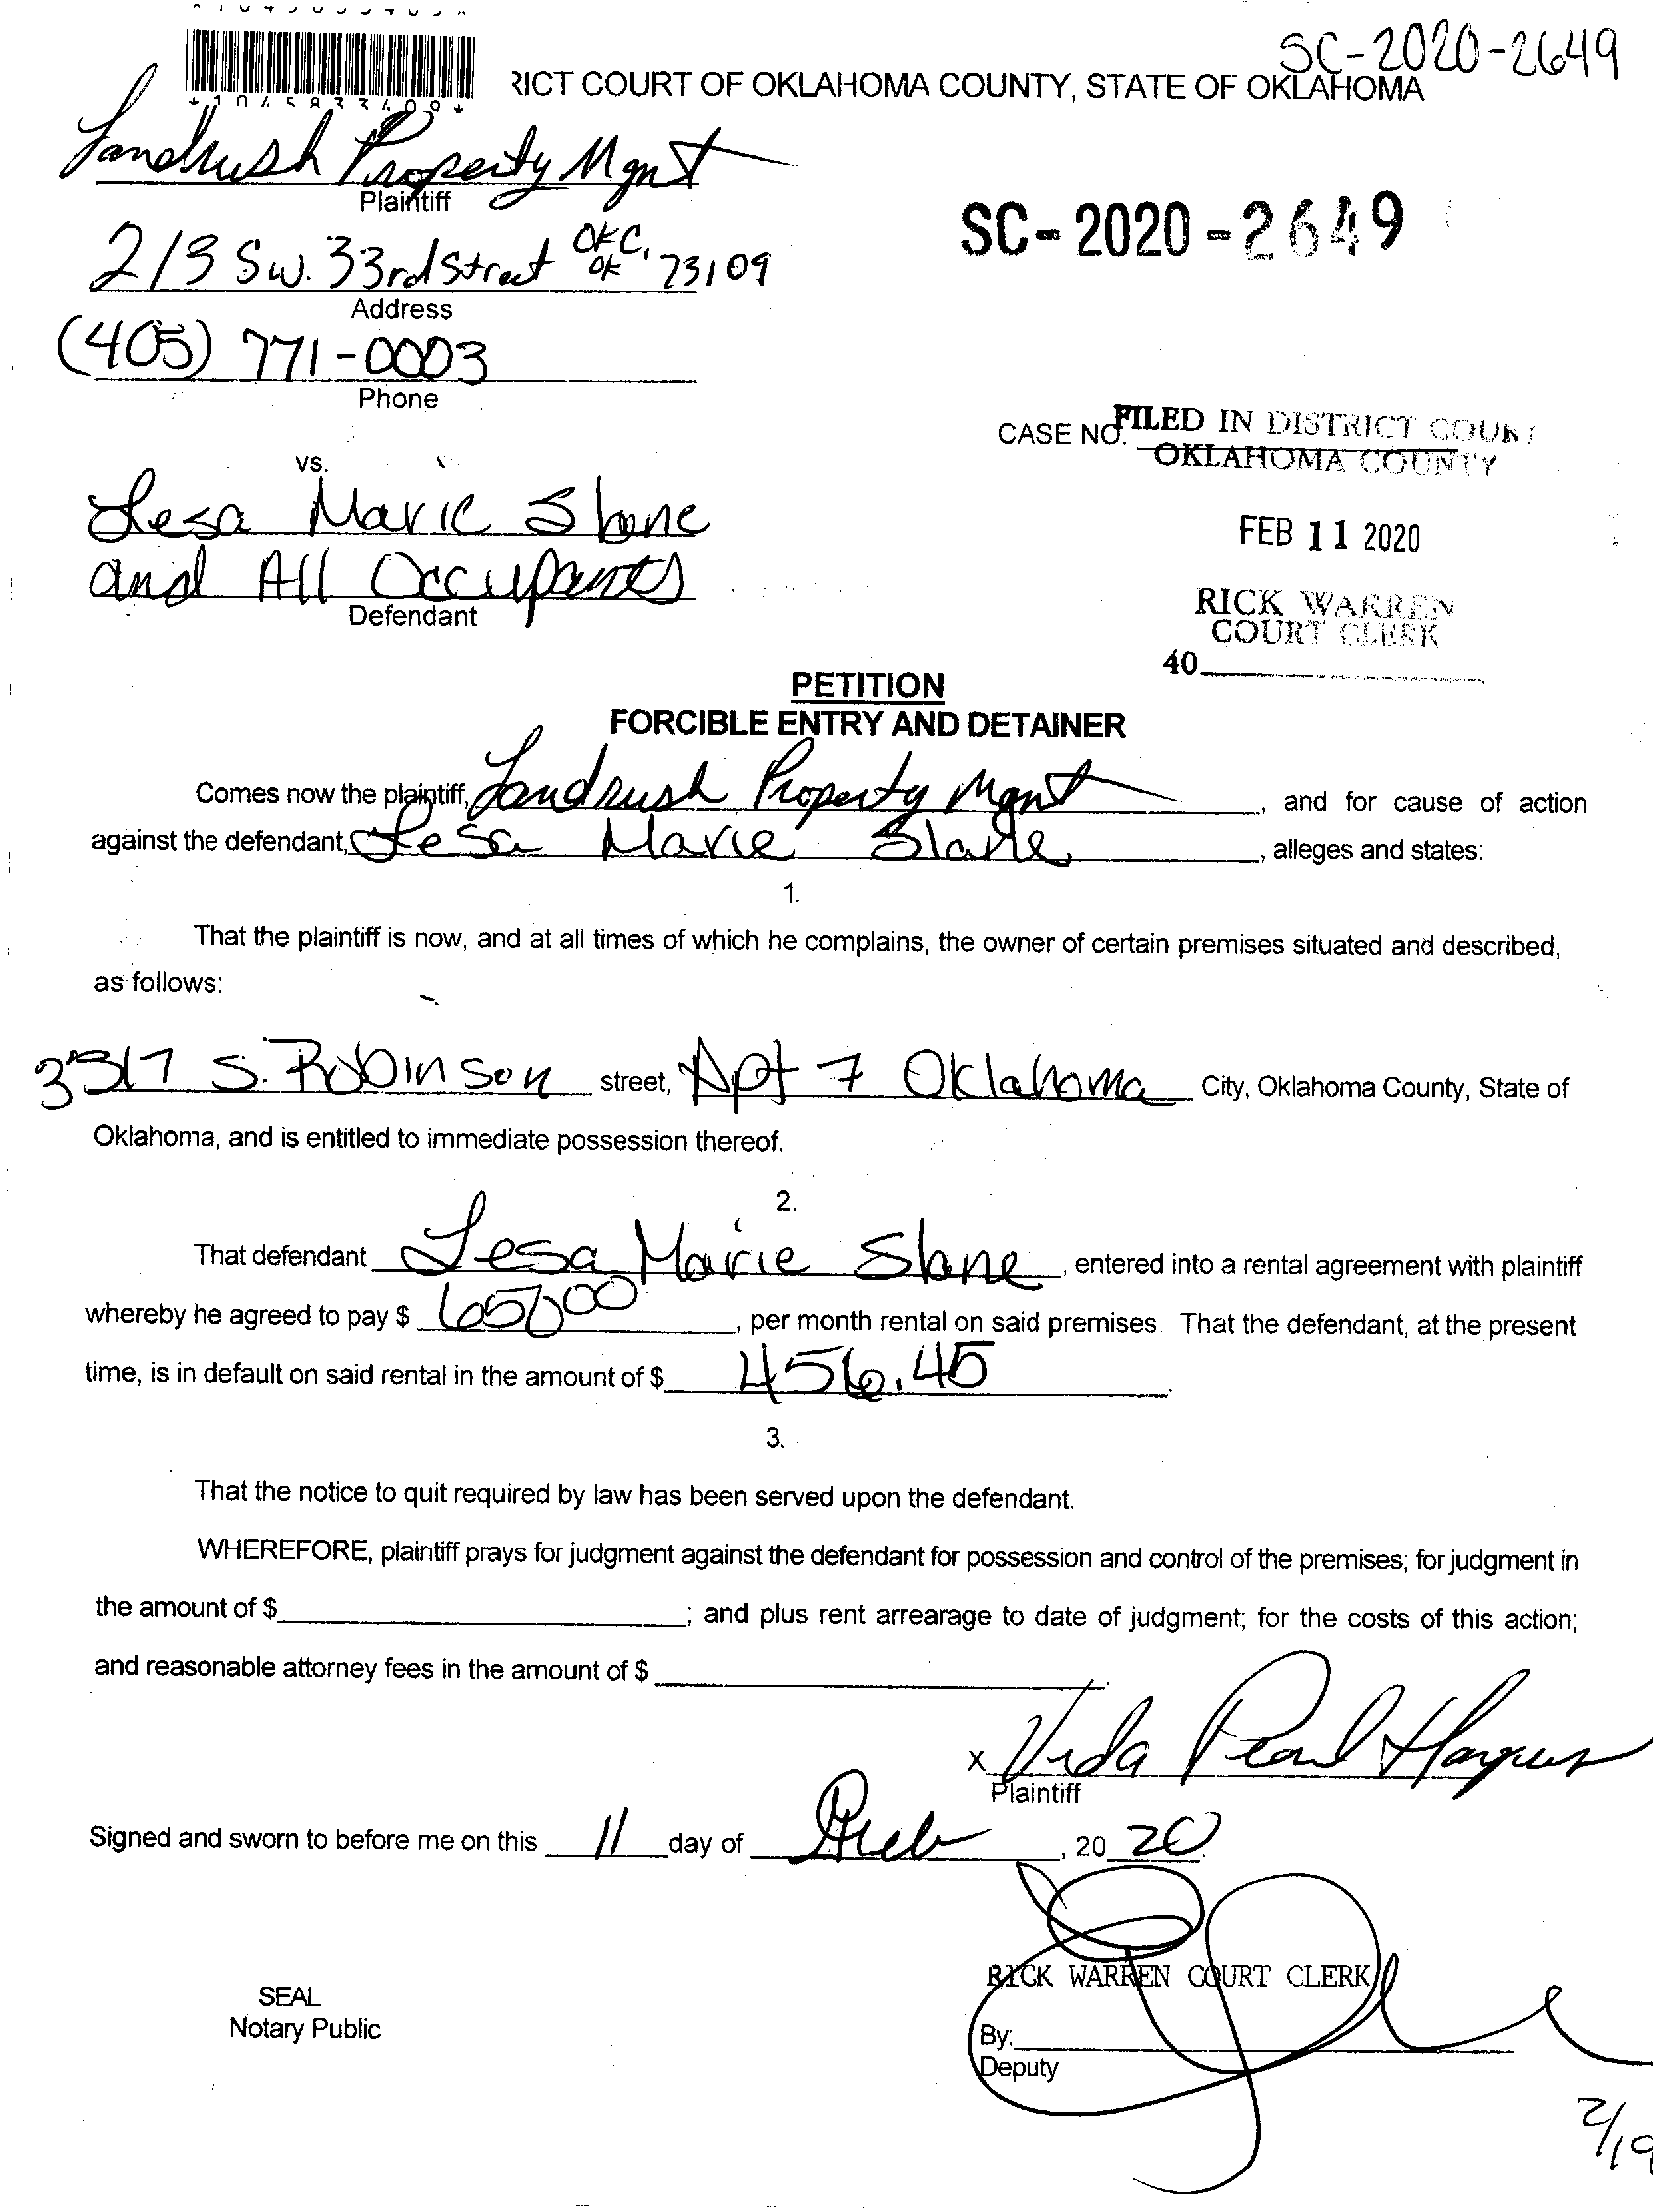 SC-2020-2649
RICT COURT OF OKLAHOMA COUNTY, STATE OF OKLAHOMA
Landrush Property Mgmt
Plaintiff
213 SW. 33rd Street OKC, OK 73109
Address
(405) 771-0003
Phone
SC-2020-2649
CASE NO.
FILED IN DISTRICT COURT
OKLAHOMA COUNTY
FEB 11 2020
RICK WARREN
COURT CLERK
40
vs.
Lesa Marie Slane
and All Occupants
Defendant
PETITION
FORCIBLE ENTRY AND DETAINER
Comes now the plaintiff, Landrush Property Mgmt, and for cause of action
against the defendant, Lesa Marie Slane, alleges and states:
1.
That the plaintiff is now, and at all times of which he complains, the owner of certain premises situated and described,
as follows:
3317 S. Robinson street, Apt 7 Oklahoma City, Oklahoma County, State of
Oklahoma, and is entitled to immediate possession thereof.
2.
That defendant Lesa Marie Slane, entered into a rental agreement with plaintiff
whereby he agreed to pay $ 650.00, per month rental on said premises. That the defendant, at the present
time, is in default on said rental in the amount of $ 456.45
3.
That the notice to quit required by law has been served upon the defendant.
WHEREFORE, plaintiff prays for judgment against the defendant for possession and control of the premises; for judgment in
the amount of $ ; and plus rent arrearage to date of judgment; for the costs of this action;
and reasonable attorney fees in the amount of $
x Vida Pearl
Plaintiff
Signed and sworn to before me on this 11 day of Feb, 20 20
RICK WARREN COURT CLERK
SEAL
Notary Public
By:
Deputy
2/19